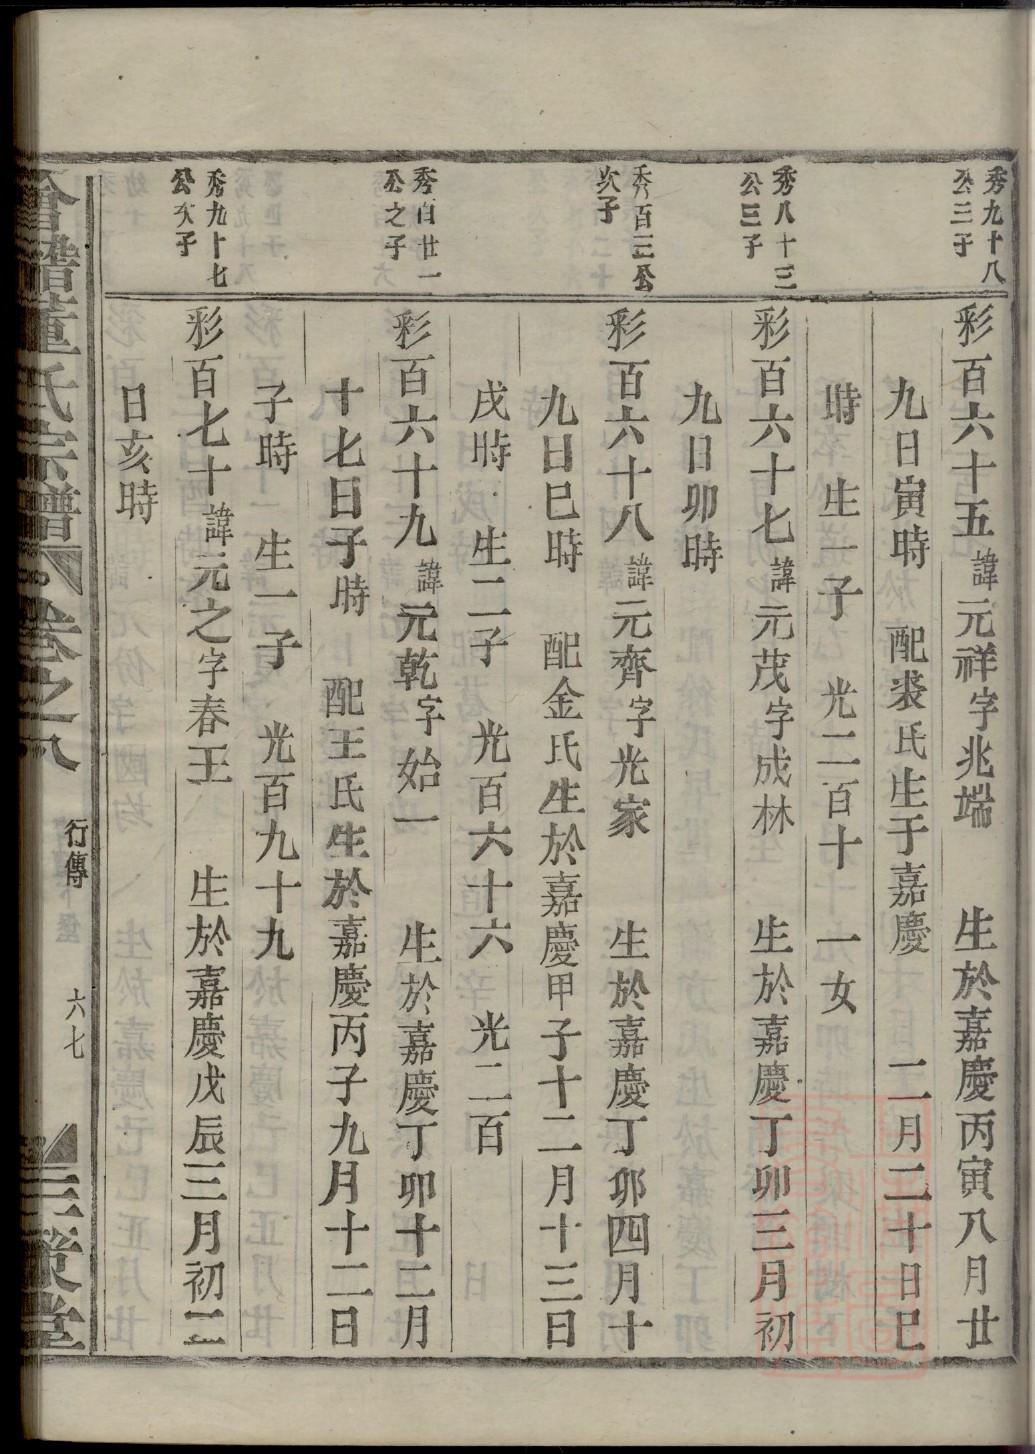 秀九十八
公三子
彩百六十五諱元祥字兆端　生於嘉慶丙寅八月廿
九日寅時　配裘氏生于嘉慶　二月二十日巳
時　生一子　光二百十　一女
秀八十三
公三子
彩百六十七諱元茂字成林　生於嘉慶丁卯三月初
九日卯時
秀百三公
次子
彩百六十八諱元齊字光家　生於嘉慶丁卯四月十
九日巳時　配金氏生於嘉慶甲子十二月十三日
戌時　生二子　光百六十六　光二百
秀百廿一
公之子
彩百六十九諱元乾字始一　生於嘉慶丁卯十二月
十七日子時　配王氏生於嘉慶丙子九月十二日
子時　生一子　光百九十九
秀九十七
公次子
彩百七十諱元之字春王　生於嘉慶戊辰三月初二
日亥時
會稽董氏宗譜　卷之八　行傳　六七　三策堂